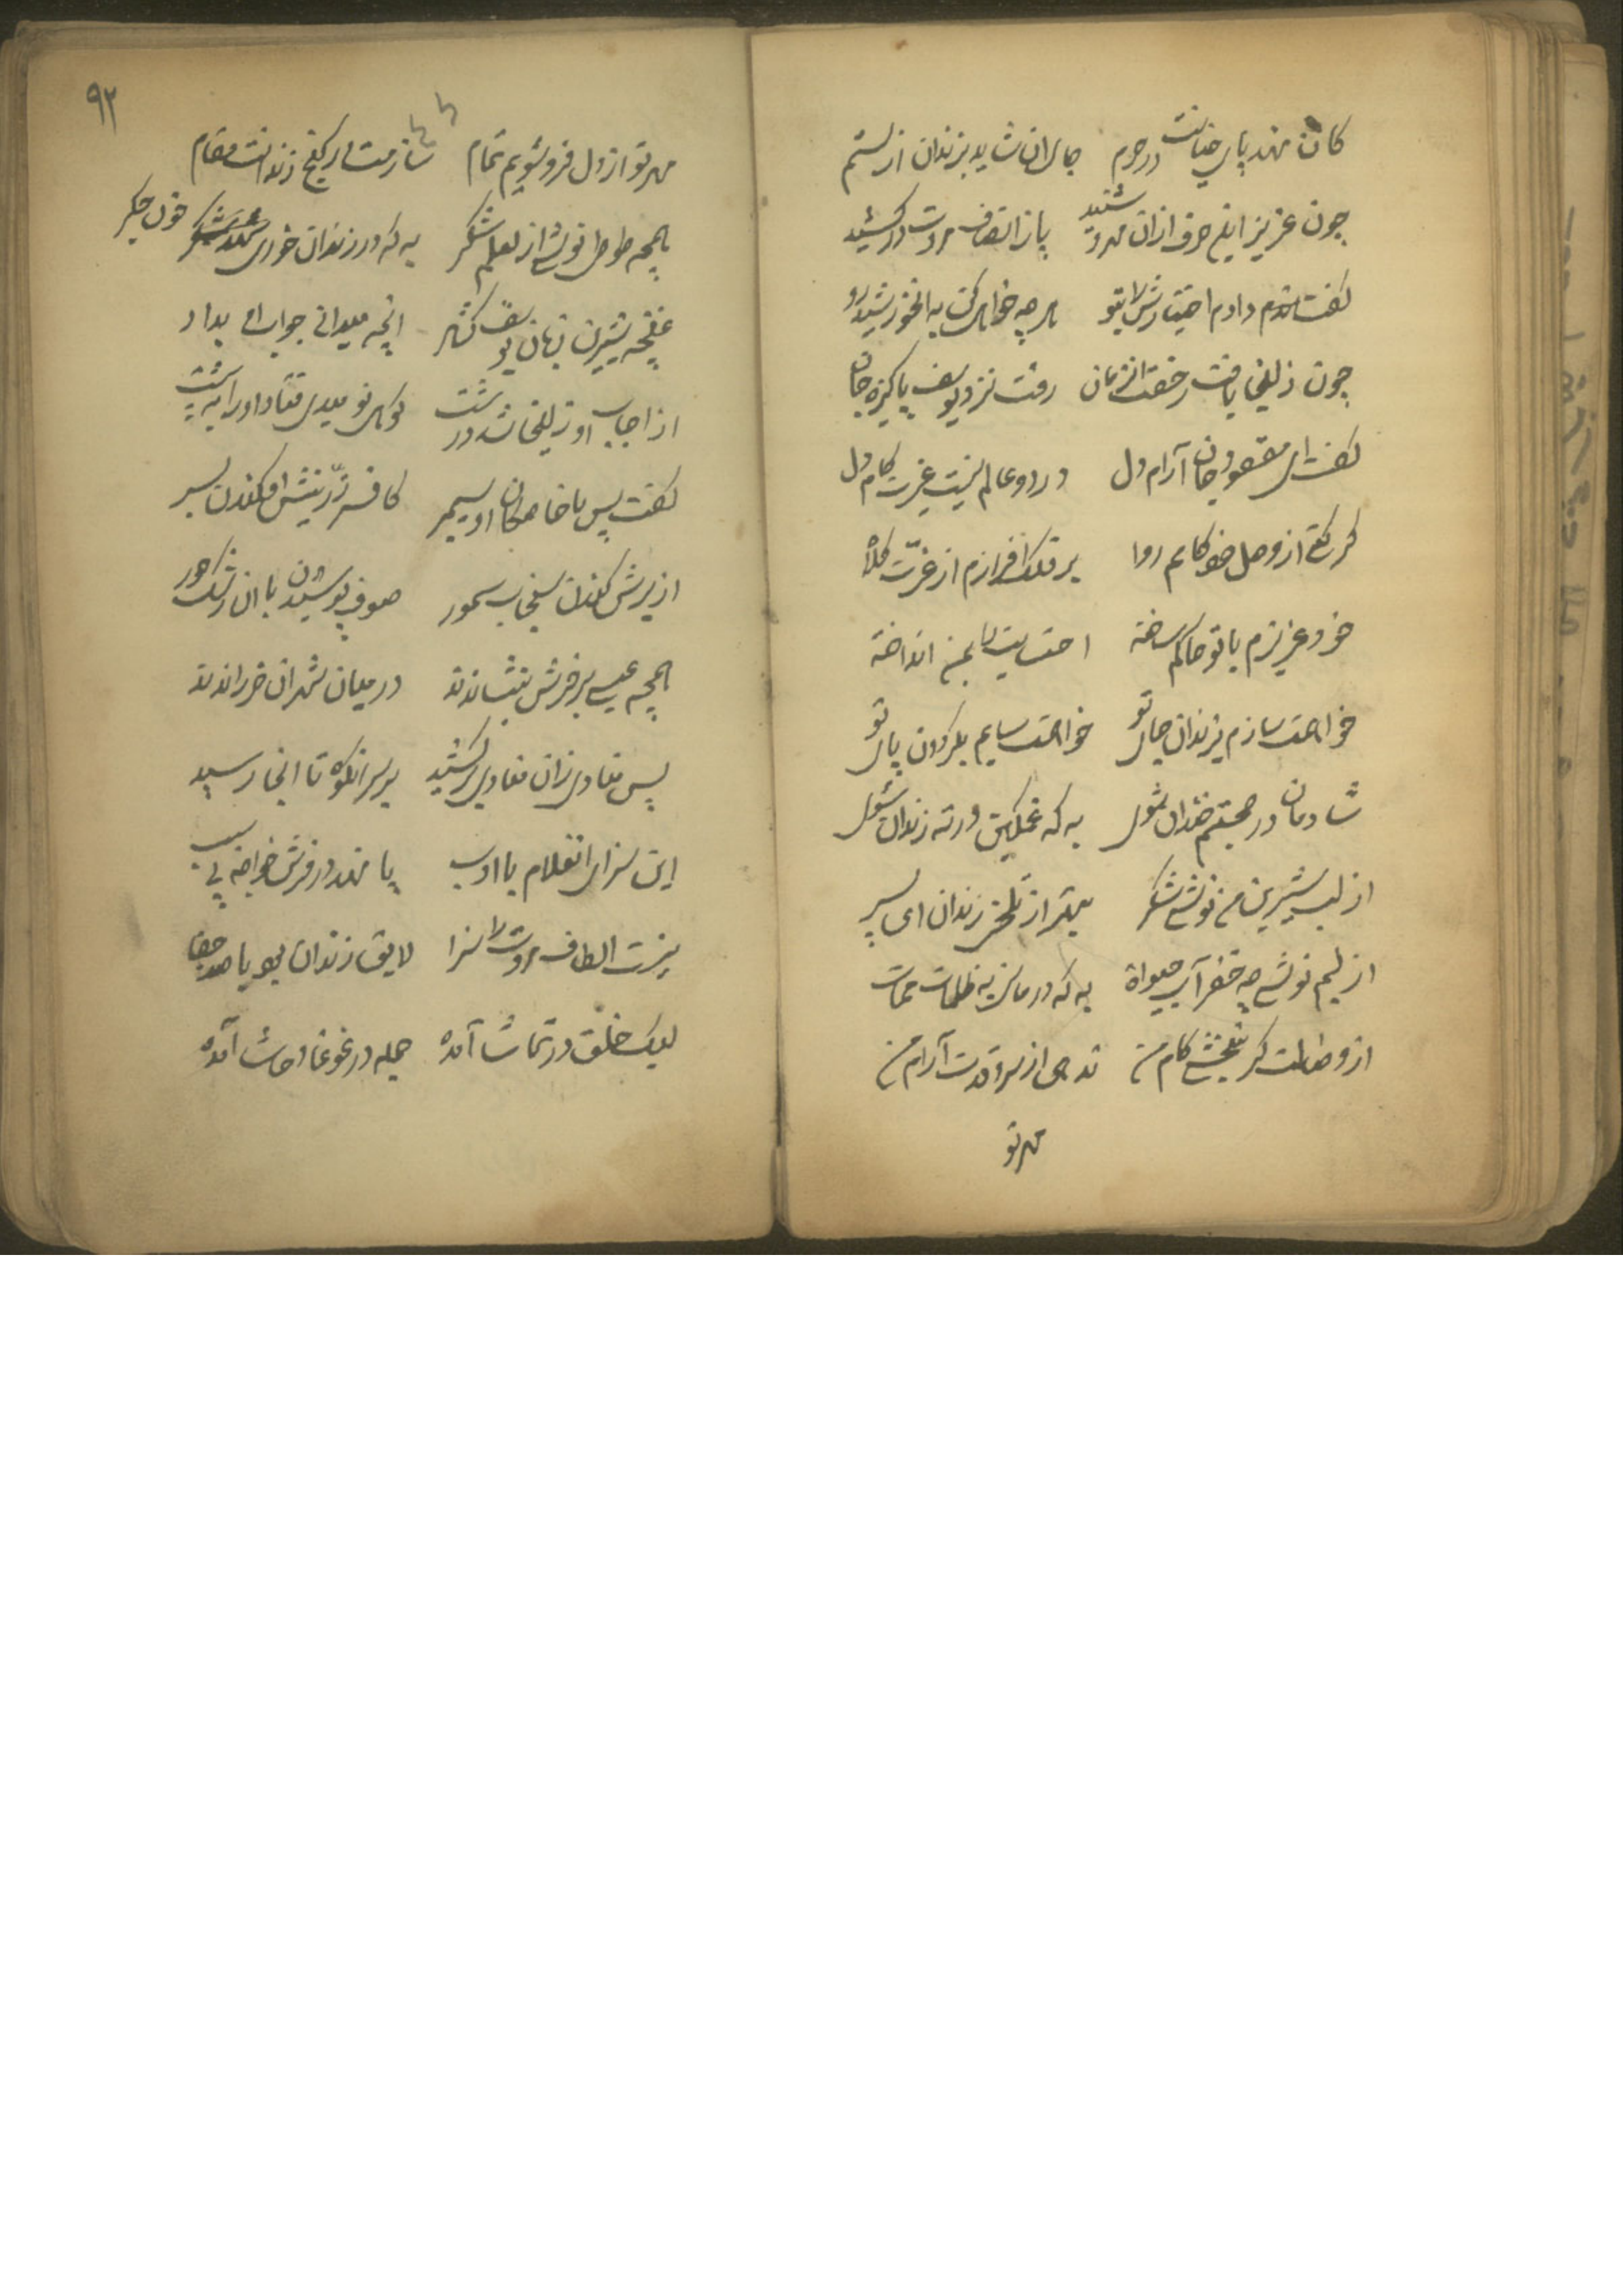 کان نهد پای خیانت در حرم جای ان شاید بزندان از ستم
چون عزیز این حرف ازان مهرو شنید پا ز انصاف مروت در کشید
گفت دادم اختیارش را بتو هر چه خواهی کن به ان خورشیدرو
چون زلیخا یافت رخصت انزمان رفت نزد یوسف پاکیزه جان
گفت ای مقصود جان آرام دل در دو عالم نیست غیرت کام دل
گر کنی از وصل خود کامم روا بر فلک افرازم از عزّت کلاه
خود عزیزم با تو حاکم ساخته اختیارت را بمن انداخته
خواهمت سازم بزندان جای تو خواهمت سایم بگردون پای تو
شادمان در صحبتم خندان شوی به که غمگین در ته زندان شوی
از لب شیرین من نوشی شکر بهتر از تلخی زندان ای پسر
از لبم نوشی چه خضر آب حیواة به که درمانی به ظلمات ممات
از وصالت گر نبخشی کام من ندهی از سرو قدت آرام من
مهر تو
۹۲
مهر تو از دل فرو شویم تمام سازمت در کنج زندانت مقام
همچه طوطی نوشی از لعلم شکر به که در زندان خوری خون جگر
غنچه شیرین زبان یوسف گشاد انچه میدانی جواب او بداد
از اجاب او زلیخا شد درشت کوه نومیدی فتاد اورا به پشت
گفت پس با خادمکان او سیمبر کافسر زرّینش افکندن بسر
از برش کندن سنجاب سمور صوف پوشیدن با ان رشک حور
همچه عیسی بر خرش بنشاندند در میان شهر ان خر راندند
پس منادی زان منادی بر کشید بر سر انکوه تا انجا رسید
این سزای انغلام با ادب پا نهد در فرش خواجه بی سبب
نیست الطاف مروت را سزا لایق زندان بود با صد جفا
لیک خلق در تماشا آمده جمله در غوغا و حاشا آمده